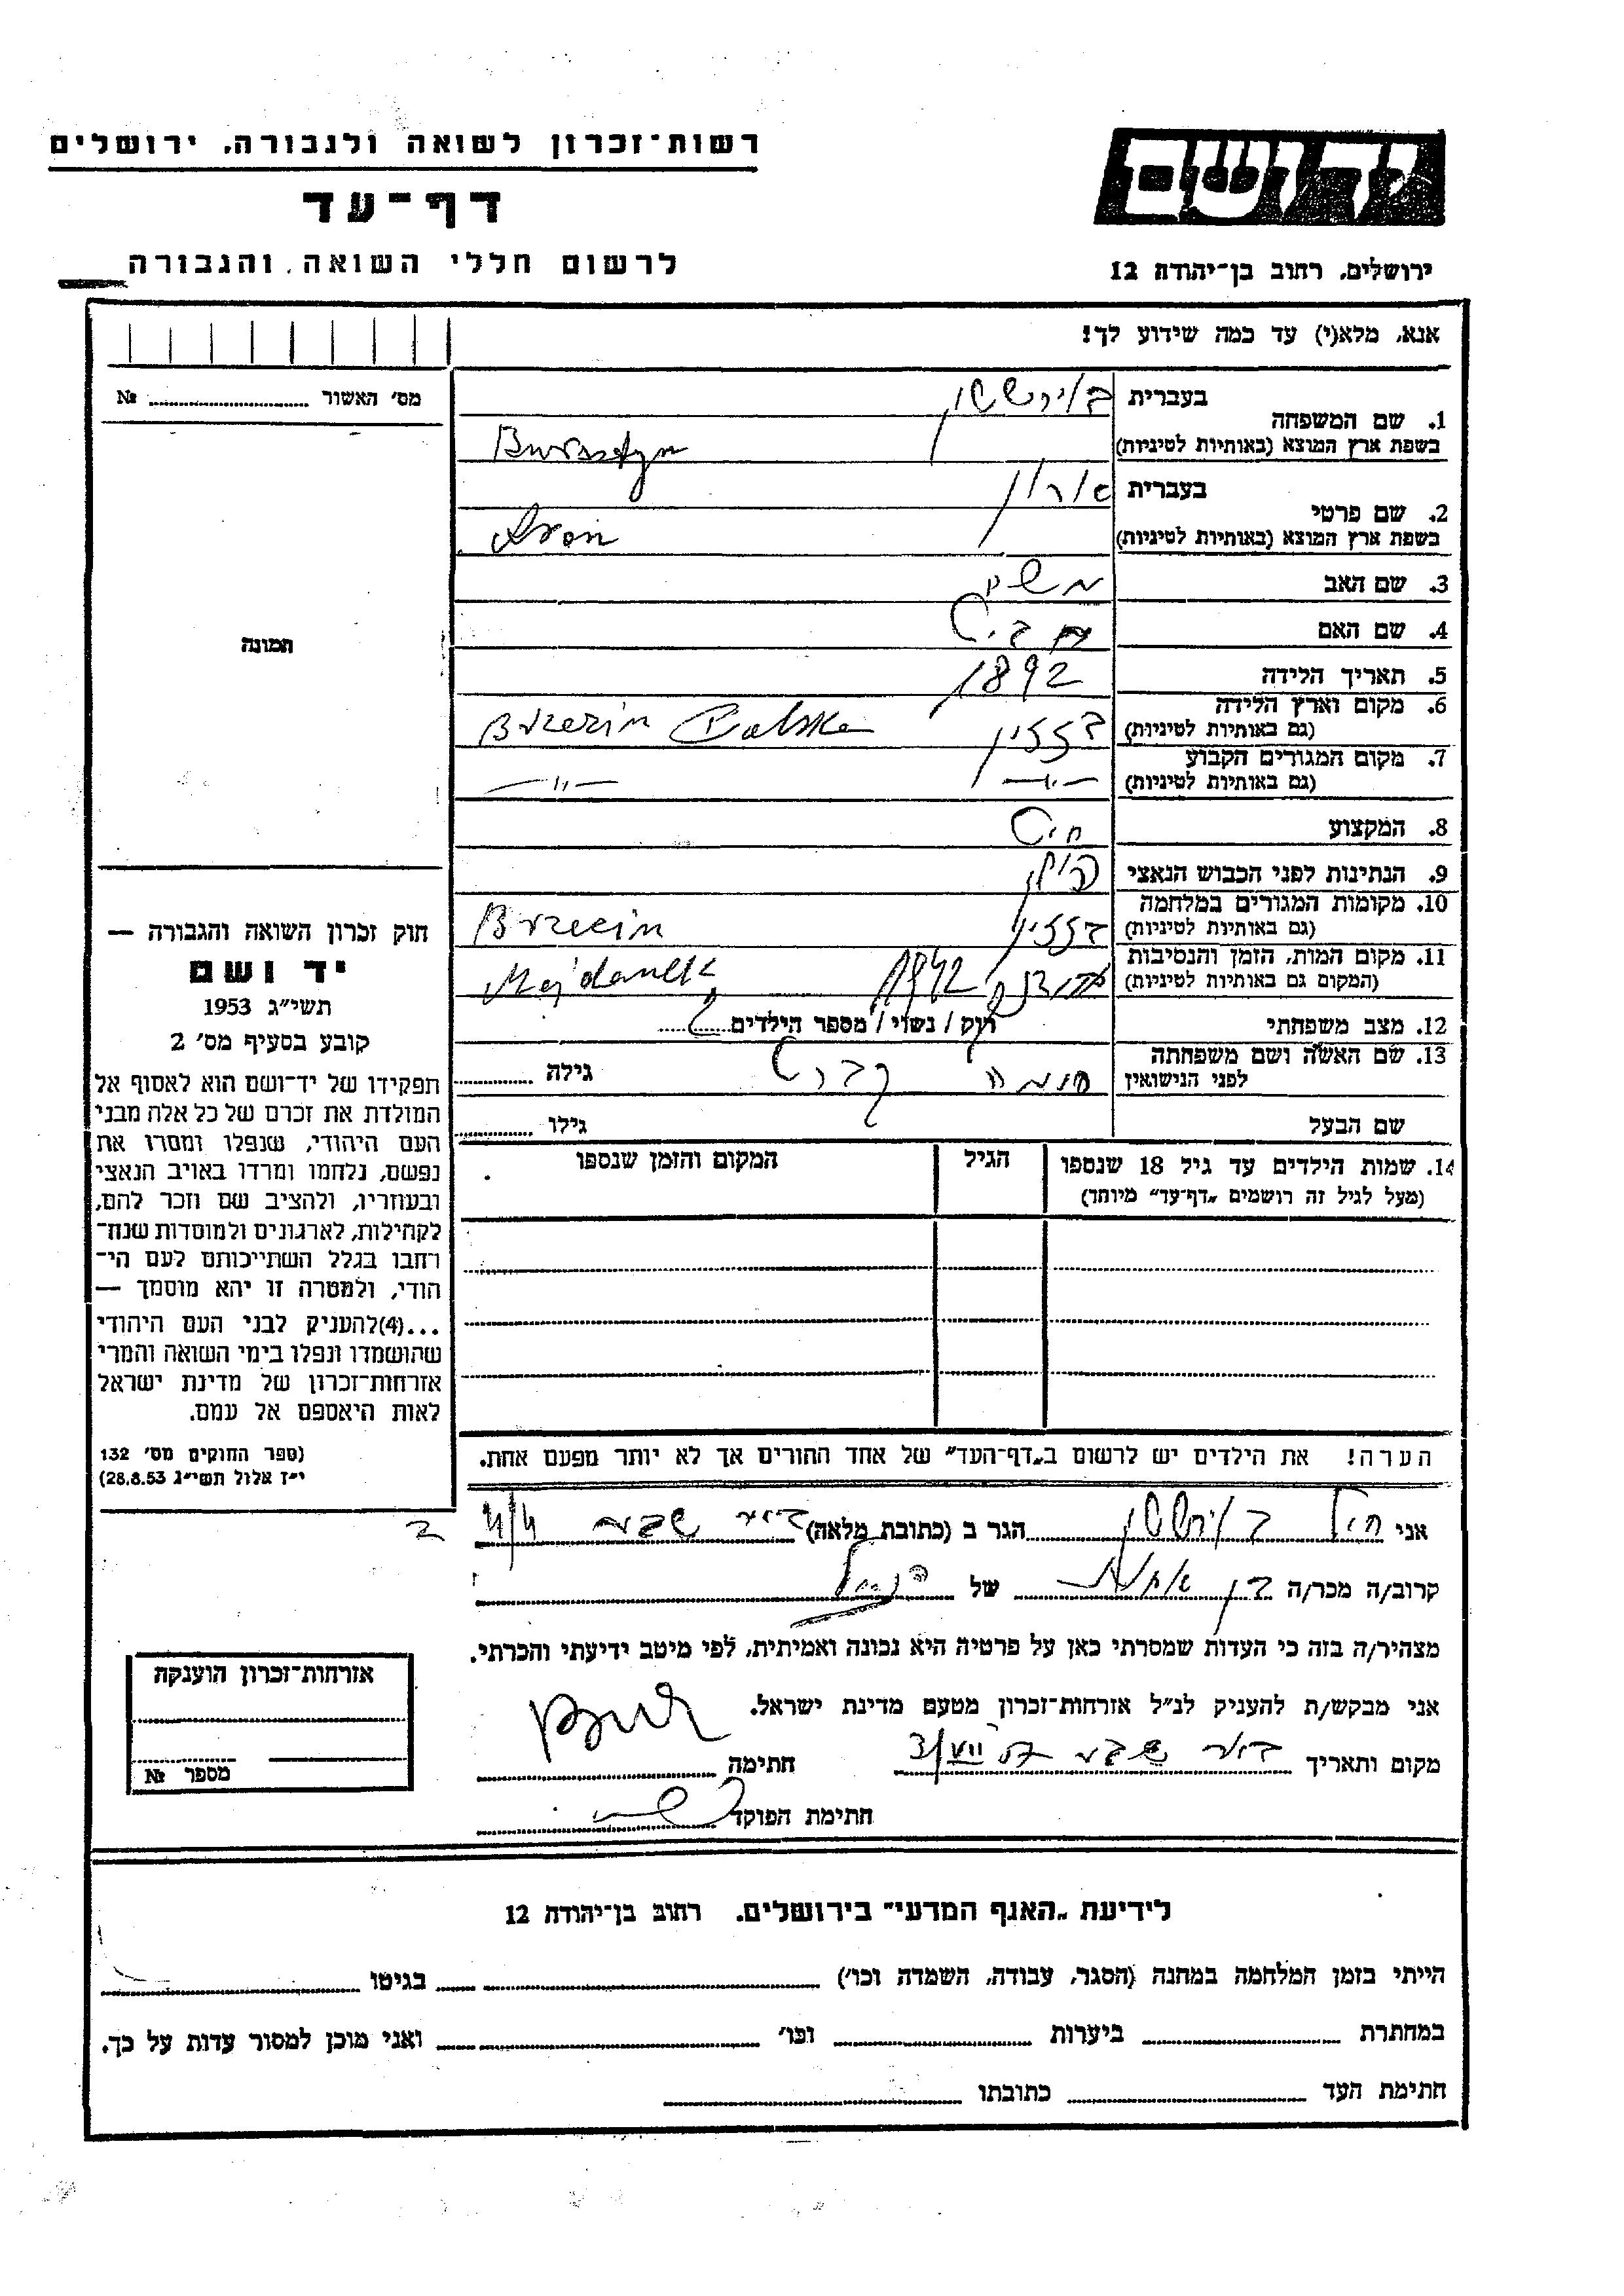 רשות־זכרון לשואה ולגבורה, ירושלים
דף־עד
לרשום חללי השואה והגבורה
ידושם
ירושלים, רחוב בן־יהודה 12
אנא, מלא(י) עד כמה שידוע לך!
מס׳ האשור №
תמונה
1. שם המשפחה בעברית
בשפת ארץ המוצא (באותיות לטיניות) Bursztyn
2. שם פרטי בעברית אהרון
בשפת ארץ המוצא (באותיות לטיניות) Aron
3. שם האב משה
4. שם האם
5. תאריך הלידה 1892
6. מקום וארץ הלידה
(גם באותיות לטיניות) Brzezin Polska
7. מקום המגורים הקבוע
(גם באותיות לטיניות) —״— —״—
8. המקצוע חיט
9. הנתינות לפני הכבוש הנאצי פולין
10. מקומות המגורים במלחמה
(גם באותיות לטיניות) Brzezin
11. מקום המות, הזמן והנסיבות
(המקום גם באותיות לטיניות) 1942 Majdanek
12. מצב משפחתי רוק / נשוי / מספר הילדים
13. שם האשה ושם משפחתה
לפני הנישואין גילה
שם הבעל גילו
14. שמות הילדים עד גיל 18 שנספו הגיל המקום והזמן שנספו
(מעל לגיל זה רושמים „דף־עד״ מיוחד)
הערה! את הילדים יש לרשום ב„דף־העד״ של אחד ההורים אך לא יותר מפעם אחת.
חוק זכרון השואה והגבורה —
יד ושם
תשי״ג 1953
קובע בסעיף מס׳ 2
תפקידו של יד־ושם הוא לאסוף אל
המולדת את זכרם של כל אלה מבני
העם היהודי, שנפלו ומסרו את
נפשם, נלחמו ומרדו באויב הנאצי
ובעוזריו, ולהציב שם וזכר להם,
לקהילות, לארגונים ולמוסדות שנח־
רחבו בגלל השתייכותם לעם הי־
הודי, ולמטרה זו יהא מוסמך —
...(4)להעניק לבני העם היהודי
שהושמדו ונפלו בימי השואה והמרי
אזרחות־זכרון של מדינת ישראל
לאות היאספם אל עמם.
(ספר החוקים מס׳ 132
י״ז אלול תשי״ג 28.8.53)
אני הגר ב (כתובת מלאה) באר שבע
קרוב/ה מכר/ה בן של הנ״ל
מצהיר/ה בזה כי העדות שמסרתי כאן על פרטיה היא נכונה ואמיתית, לפי מיטב ידיעתי והכרתי.
אני מבקש/ת להעניק לנ״ל אזרחות־זכרון מטעם מדינת ישראל.
מקום ותאריך באר שבע חתימה
חתימת הפוקד
אזרחות־זכרון הוענקה
מספר №
לידיעת „האגף המדעי״ בירושלים, רחוב בן־יהודה 12
הייתי בזמן המלחמה במחנה (הסגר, עבודה, השמדה וכו׳) בגיטו
במחתרת ביערות וכו׳ ואני מוכן למסור עדות על כך.
חתימת העד כתובתו